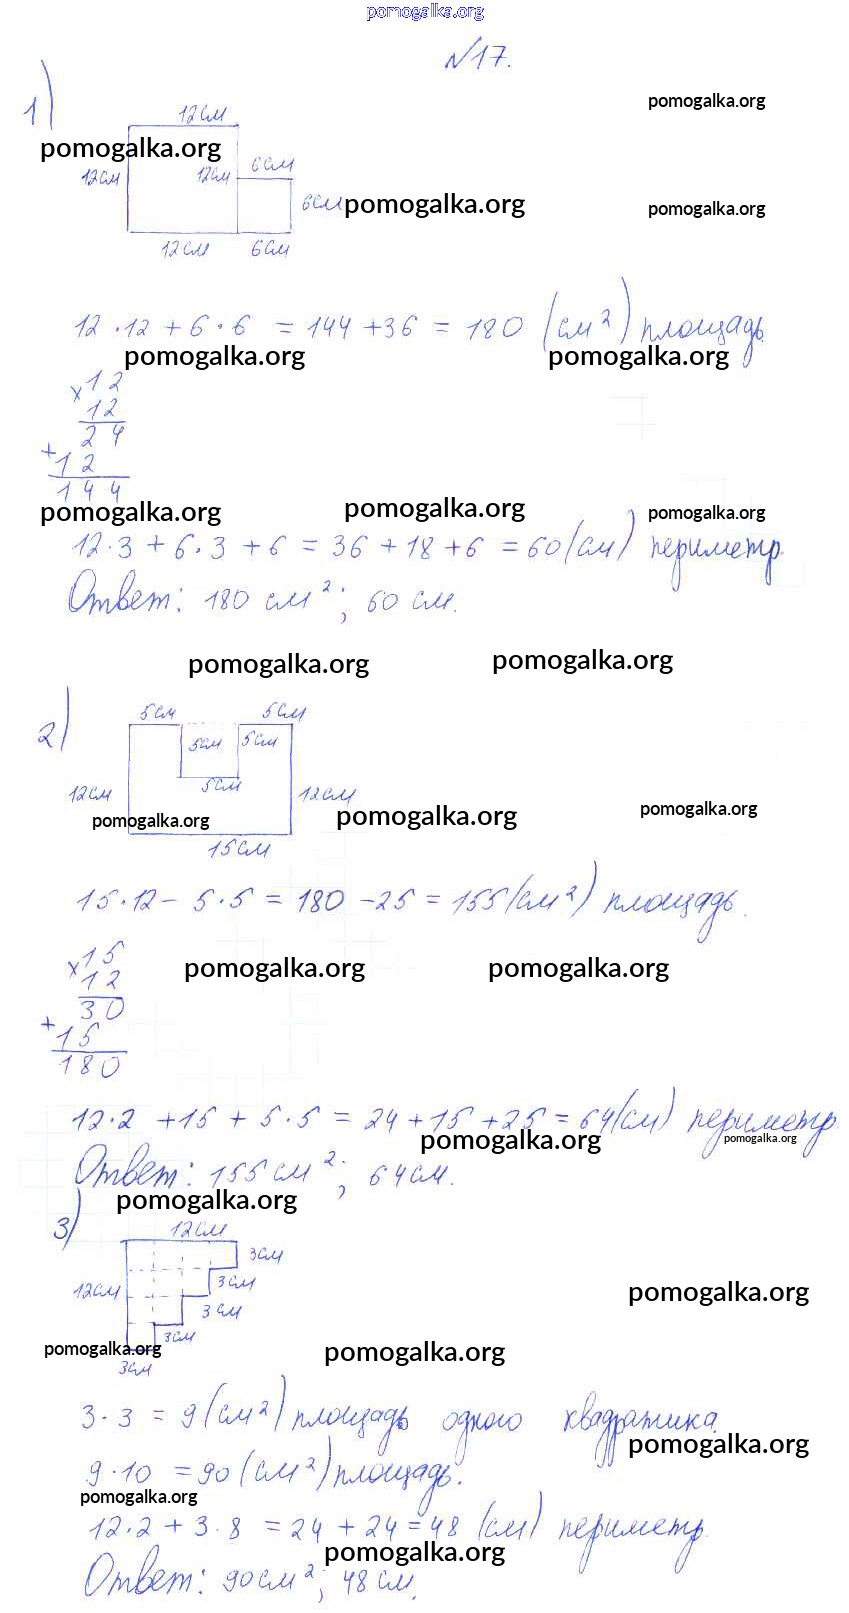 pomogalka.org
№17.
1)
12см
pomogalka.org
pomogalka.org
12см 12см 6см
6см pomogalka.org pomogalka.org
12см 6см
12·12 + 6·6 = 144 + 36 = 180 (см²) площадь.
pomogalka.org pomogalka.org
× 12
12
24
+ 12
144
pomogalka.org pomogalka.org pomogalka.org
12·3 + 6·3 + 6 = 36 + 18 + 6 = 60 (см) периметр.
Ответ: 180 см²; 60 см.
pomogalka.org pomogalka.org
2)
5см 5см
5см 5см
5см
12см 12см
pomogalka.org pomogalka.org pomogalka.org
15см
15·12 - 5·5 = 180 - 25 = 155 (см²) площадь.
× 15
12
30
+ 15
180
pomogalka.org pomogalka.org
12·2 + 15 + 5·5 = 24 + 15 + 25 = 64 (см) периметр
pomogalka.org pomogalka.org
Ответ: 155 см²; 64 см.
pomogalka.org
3)
12см
3см
12см 3см
3см
3см
pomogalka.org
pomogalka.org pomogalka.org
3см
3·3 = 9 (см²) площадь одного квадратика.
pomogalka.org
9·10 = 90 (см²) площадь.
pomogalka.org
12·2 + 3·8 = 24 + 24 = 48 (см) периметр.
pomogalka.org
Ответ: 90 см²; 48 см.